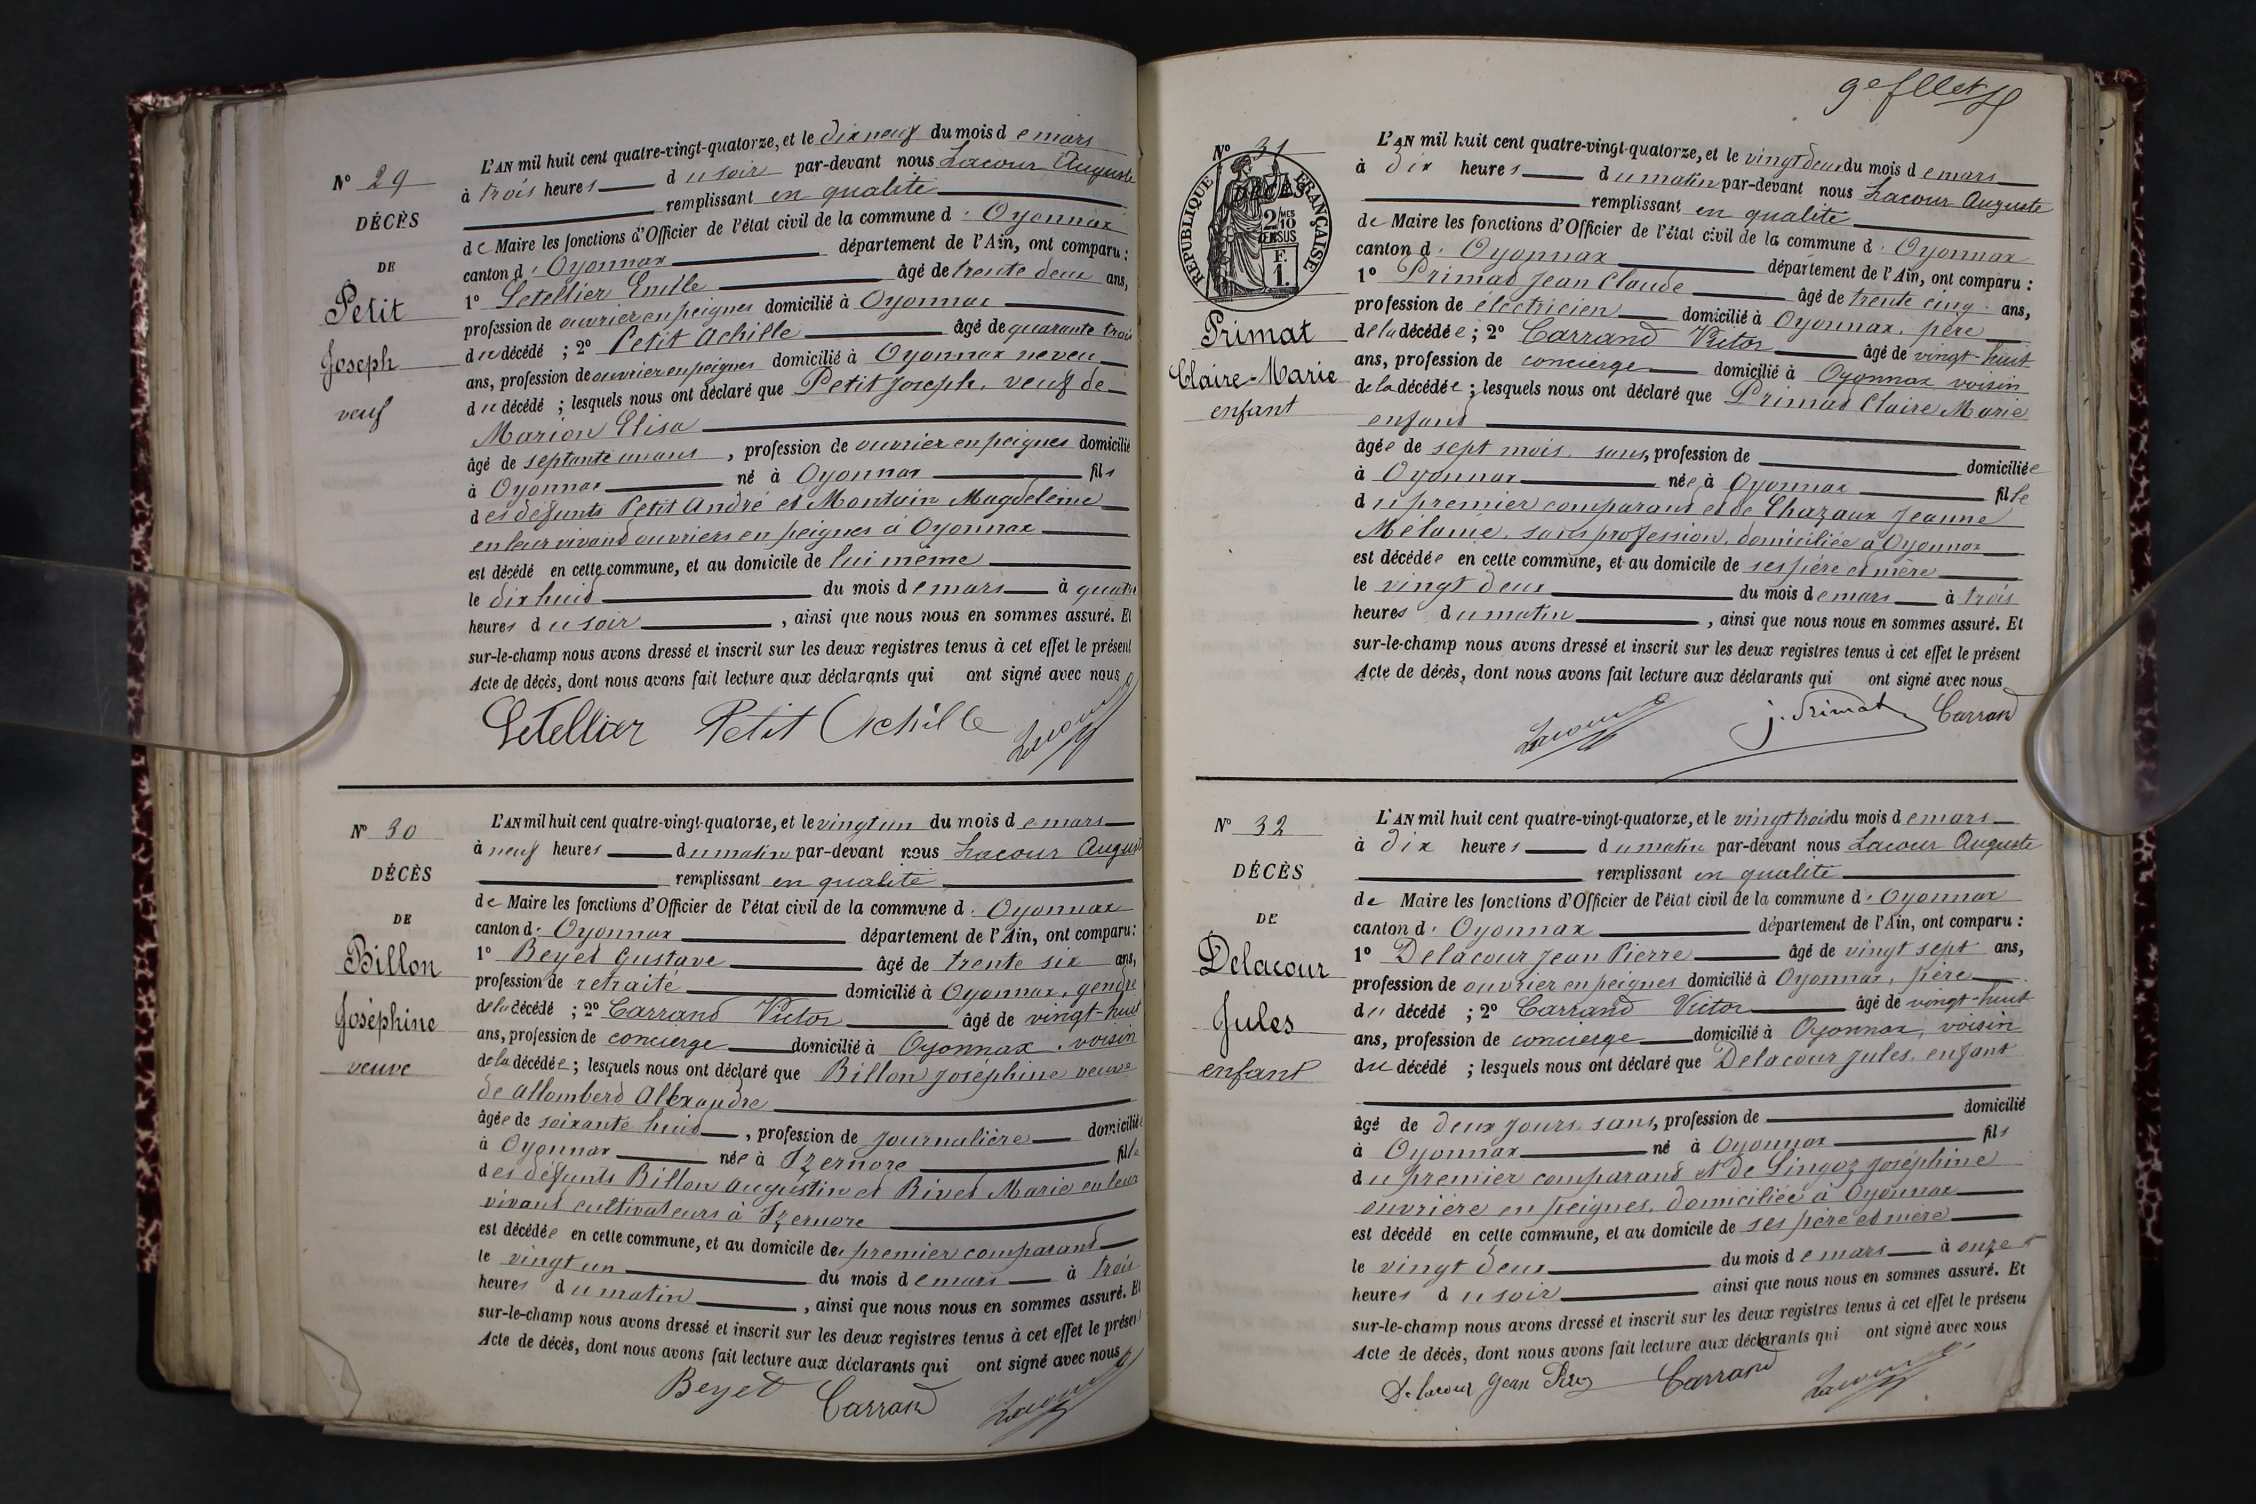 N° 29
DÉCÈS
DE
Petit
Joseph
veuf
L'AN mil huit cent quatre-vingt-quatorze, et le dix neuf du mois de mars
à trois heures du soir par-devant nous Lacour Auguste
remplissant en qualité
de Maire les fonctions d'Officier de l'état civil de la commune d'Oyonnax
canton d'Oyonnax département de l'Ain, ont comparu :
1° Letellier Emile âgé de trente deux ans,
profession de ouvrier en peignes domicilié à Oyonnax
du décédé ; 2° Petit Achille âgé de quarante trois
ans, profession de ouvrier en peignes domicilié à Oyonnax neveu
du décédé ; lesquels nous ont déclaré que Petit Joseph, veuf de
Marion Elisa
âgé de septante un ans, profession de ouvrier en peignes domicilié
à Oyonnax né à Oyonnax fils
des défunts Petit André et Montain Magdeleine
en leur vivant ouvriers en peignes à Oyonnax
est décédé en cette commune, et au domicile de lui même
le dix huit du mois de mars à quatre
heures du soir, ainsi que nous nous en sommes assuré. Et
sur-le-champ nous avons dressé et inscrit sur les deux registres tenus à cet effet le présent
Acte de décès, dont nous avons fait lecture aux déclarants qui ont signé avec nous
Letellier Petit Achille Lacour
N° 30
DÉCÈS
DE
Billon
Joséphine
veuve
L'AN mil huit cent quatre-vingt-quatorze, et le vingt un du mois de mars
à neuf heures du matin par-devant nous Lacour Auguste
remplissant en qualité
de Maire les fonctions d'Officier de l'état civil de la commune d'Oyonnax
canton d'Oyonnax département de l'Ain, ont comparu :
1° Beyet Gustave âgé de trente six ans,
profession de retraité domicilié à Oyonnax, gendre
de la décédé ; 2° Carrand Victor âgé de vingt-huit
ans, profession de concierge domicilié à Oyonnax, voisin
de la décédée ; lesquels nous ont déclaré que Billon Joséphine veuve
de Allombert Alexandre
âgée de soixante huit, profession de journalière domiciliée
à Oyonnax née à Izernore fille
des défunts Billon Augustin et Rivet Marie en leur
vivant cultivateurs à Izernore
est décédée en cette commune, et au domicile de premier comparant
le vingt un du mois de mars à trois
heures du matin, ainsi que nous nous en sommes assuré. Et
sur-le-champ nous avons dressé et inscrit sur les deux registres tenus à cet effet le présent
Acte de décès, dont nous avons fait lecture aux déclarants qui ont signé avec nous
Beyet Carrand Lacour
9e fllet
N° 31
RÉPUBLIQUE FRANÇAISE
2/10 MES
EN SUS
F.
1.
Primat
Claire-Marie
enfant
L'AN mil huit cent quatre-vingt-quatorze, et le vingt deux du mois de mars
à dix heures du matin par-devant nous Lacour Auguste
remplissant en qualité
de Maire les fonctions d'Officier de l'état civil de la commune d'Oyonnax
canton d'Oyonnax département de l'Ain, ont comparu :
1° Primat Jean Claude âgé de trente cinq ans,
profession de électricien domicilié à Oyonnax, père
de la décédée ; 2° Carrand Victor âgé de vingt-huit
ans, profession de concierge domicilié à Oyonnax voisin
de la décédée ; lesquels nous ont déclaré que Primat Claire Marie
enfant
âgée de sept mois, sans, profession de domiciliée
à Oyonnax née à Oyonnax fille
du premier comparant et de Chazaux Jeanne
Mélanie, sans profession, domiciliée à Oyonnax
est décédée en cette commune, et au domicile de ses père et mère
le vingt deux du mois de mars à trois
heures du matin, ainsi que nous nous en sommes assuré. Et
sur-le-champ nous avons dressé et inscrit sur les deux registres tenus à cet effet le présent
Acte de décès, dont nous avons fait lecture aux déclarants qui ont signé avec nous
Lacour j. Primat Carrand
N° 32
DÉCÈS
DE
Delacour
Jules
enfant
L'AN mil huit cent quatre-vingt-quatorze, et le vingt trois du mois de mars
à dix heures du matin par-devant nous Lacour Auguste
remplissant en qualité
de Maire les fonctions d'Officier de l'état civil de la commune d'Oyonnax
canton d'Oyonnax département de l'Ain, ont comparu :
1° Delacour Jean Pierre âgé de vingt sept ans,
profession de ouvrier en peignes domicilié à Oyonnax, père
du décédé ; 2° Carrand Victor âgé de vingt-huit
ans, profession de concierge domicilié à Oyonnax, voisin
du décédé ; lesquels nous ont déclaré que Delacour Jules, enfant
âgé de deux jours, sans, profession de domicilié
à Oyonnax né à Oyonnax fils
du premier comparant et de Lingoz Joséphine
ouvrière en peignes, domiciliée à Oyonnax
est décédé en cette commune, et au domicile de ses père et mère
le vingt deux du mois de mars à onze
heures du soir ainsi que nous nous en sommes assuré. Et
sur-le-champ nous avons dressé et inscrit sur les deux registres tenus à cet effet le présent
Acte de décès, dont nous avons fait lecture aux déclarants qui ont signé avec nous
Delacour Jean Carrand Lacour